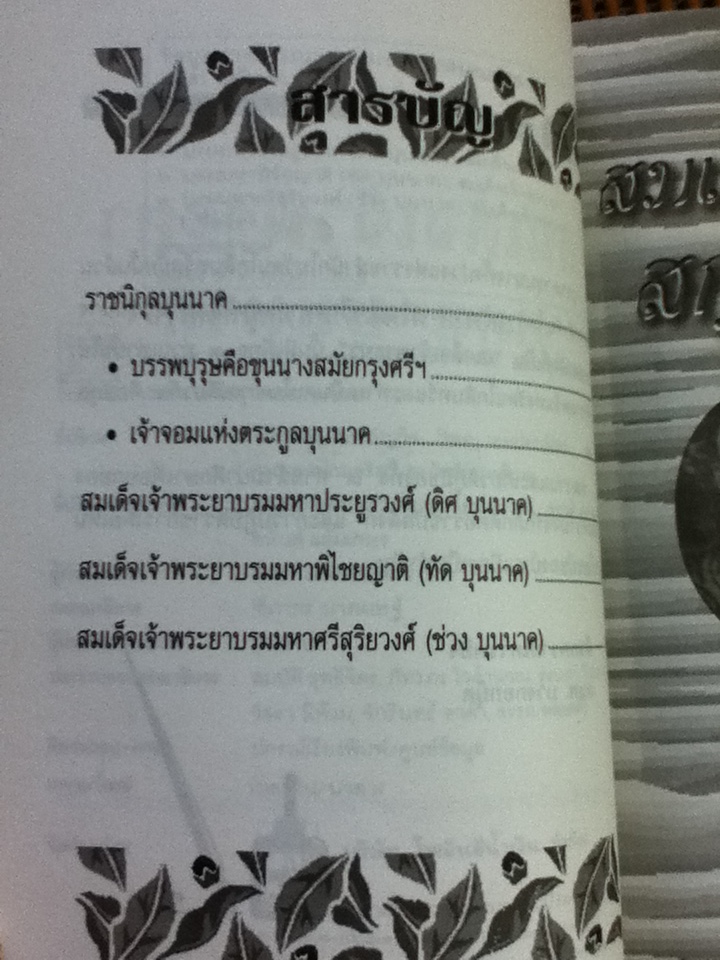 สารบัญ
ราชนิกุลบุนนาค
• บรรพบุรุษคือขุนนางสมัยกรุงศรีฯ
• เจ้าจอมแห่งตระกูลบุนนาค
สมเด็จเจ้าพระยาบรมมหาประยูรวงศ์ (ดิศ บุนนาค)
สมเด็จเจ้าพระยาบรมมหาพิไชยญาติ (ทัด บุนนาค)
สมเด็จเจ้าพระยาบรมมหาศรีสุริยวงศ์ (ช่วง บุนนาค)